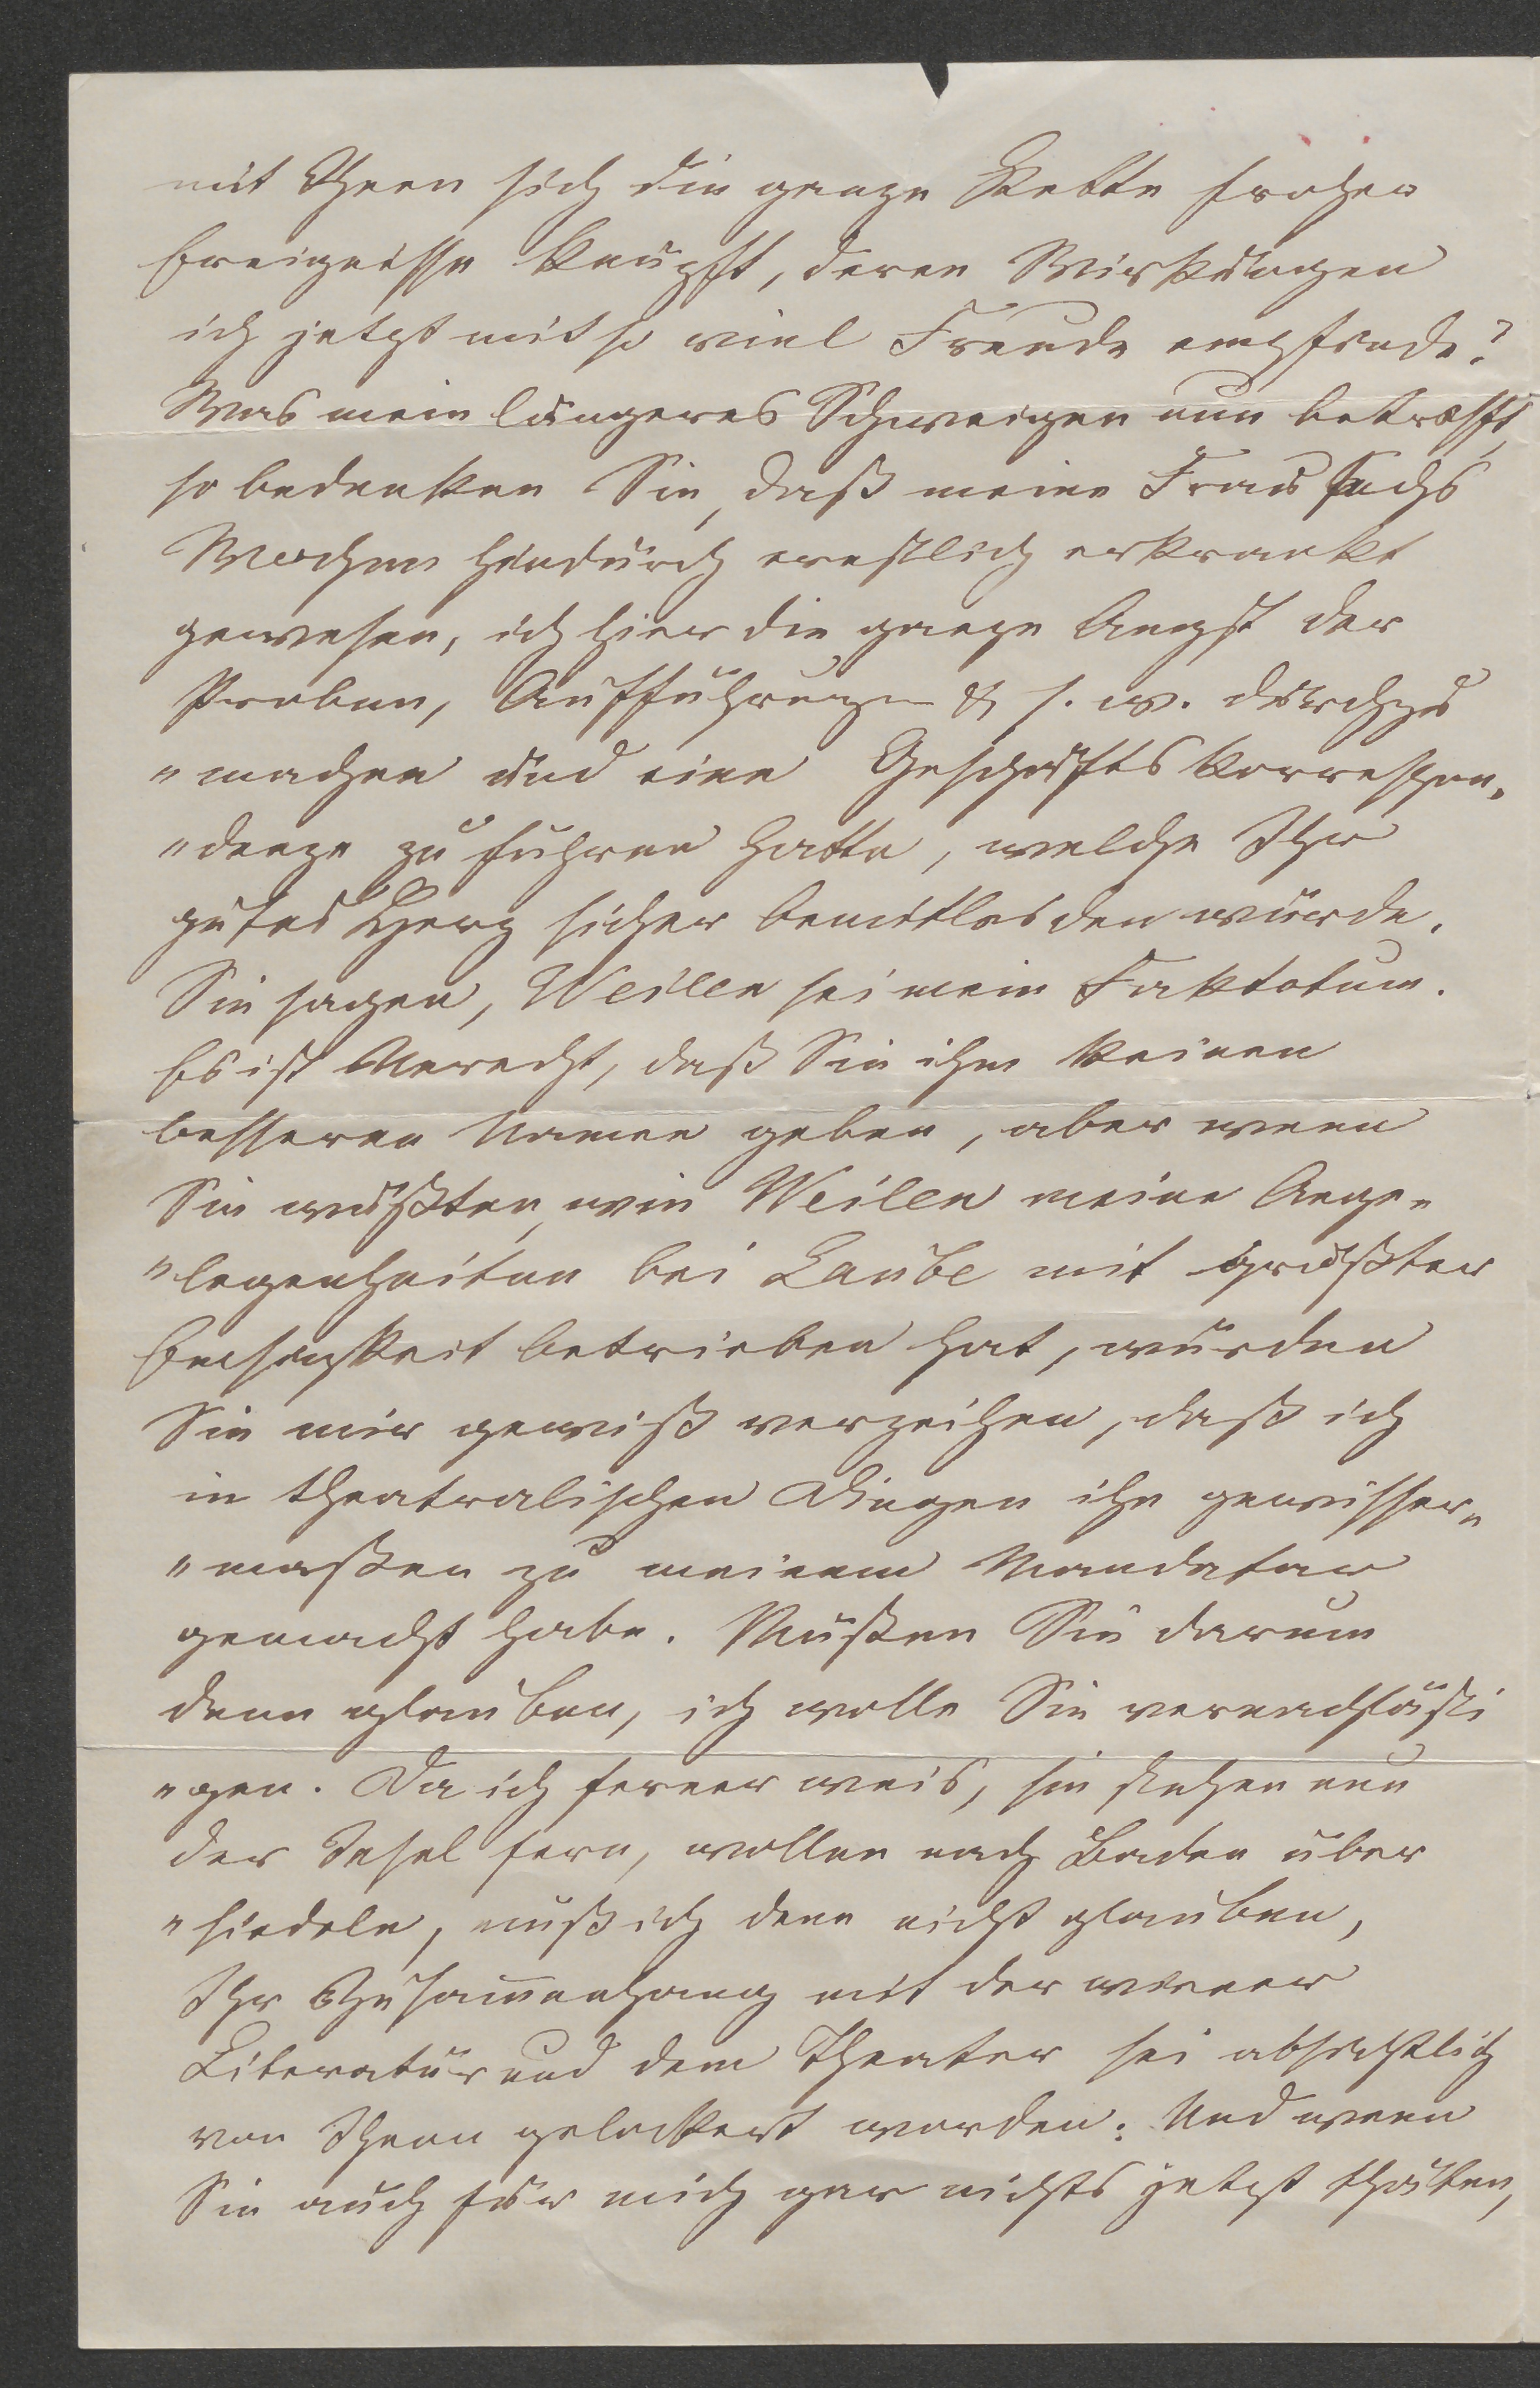 mit Ihnen sich die ganze Kette froher
Ereignisse knüpft, deren Wirkungen
ich jetzt mit so viel Freude empfinde?
Was mein längeres Schweigen nun betrifft,
so bedenken Sie, daß meine Frau sechs
Wochen hindurch ernstlich erkrankt
gewesen, ich hier die ganze Angst der
Proben, Aufführungen u. s. w. durchzu
"machen und eine Geschäftskorrespon„
"denze zu führen hatte, welche Ihr
gutes Herz sicher bemitleiden würde.
Sie sagen, Weilen sei mein Faktotum.
Es ist Unrecht, daß Sie ihm keinen
besseren Namen geben, aber wenn
Sie wüßten, wie Weilen meine Ange„
"legenheiten bei Laube mit größter
Emsigkeit betrieben hat, würden
Sie mir gewiß verzeihen, daß ich
in theatralischen Dingen ihn gewisser„
"maßen zu meinem Mandatar
gemacht habe. Müßen Sie darum
denn glauben, ich wolle Sie vernachläßi
"gen. Da ich ferner weis, sie stehen nun
der Insel fern, wollen nach Baden über
"siedeln, muß ich denn nicht glauben,
Ihr Zusam̅enhang mit der wiener
Literatur und dem Theater sei absichtlich
von Ihnen gelockert worden. Und wenn
Sie auch für mich gar nichts jetzt thäten,